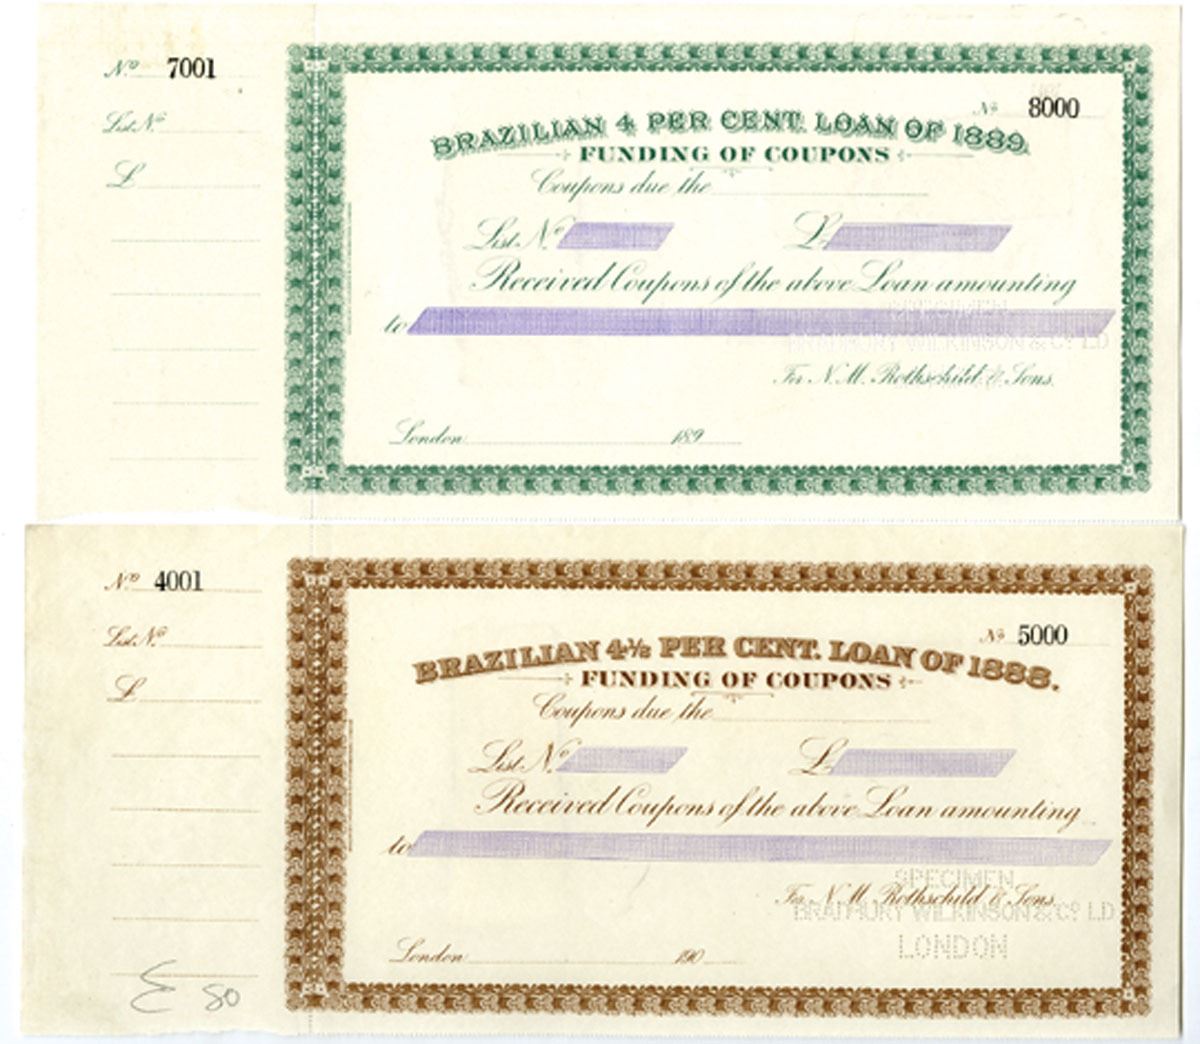 No 7001
List No
£
No 8000
BRAZILIAN 4 PER CENT. LOAN OF 1889.
FUNDING OF COUPONS
Coupons due the
List No £
Received Coupons of the above Loan amounting
to
SPECIMEN
BRADBURY WILKINSON & Co LD
For N.M. Rothschild & Sons.
London 189
No 4001
List No
£
No 5000
BRAZILIAN 4½ PER CENT. LOAN OF 1888.
FUNDING OF COUPONS
Coupons due the
List No £
Received Coupons of the above Loan amounting
to
SPECIMEN
For N.M. Rothschild & Sons.
BRADBURY WILKINSON & Co LD
LONDON
London 190
80